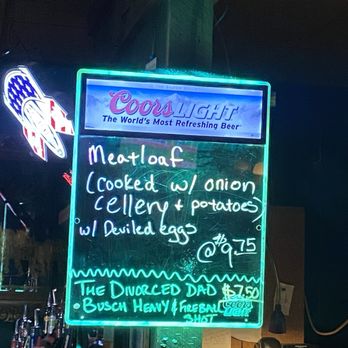 Coors LIGHT
The World's Most Refreshing Beer
Meatloaf
(cooked w/ onion
cellery + potatoes)
w/ Deviled eggs
@ $9.75
THE DIVORCED DAD $7.50
• BUSCH HEAVY & FIREBALL
SHOT